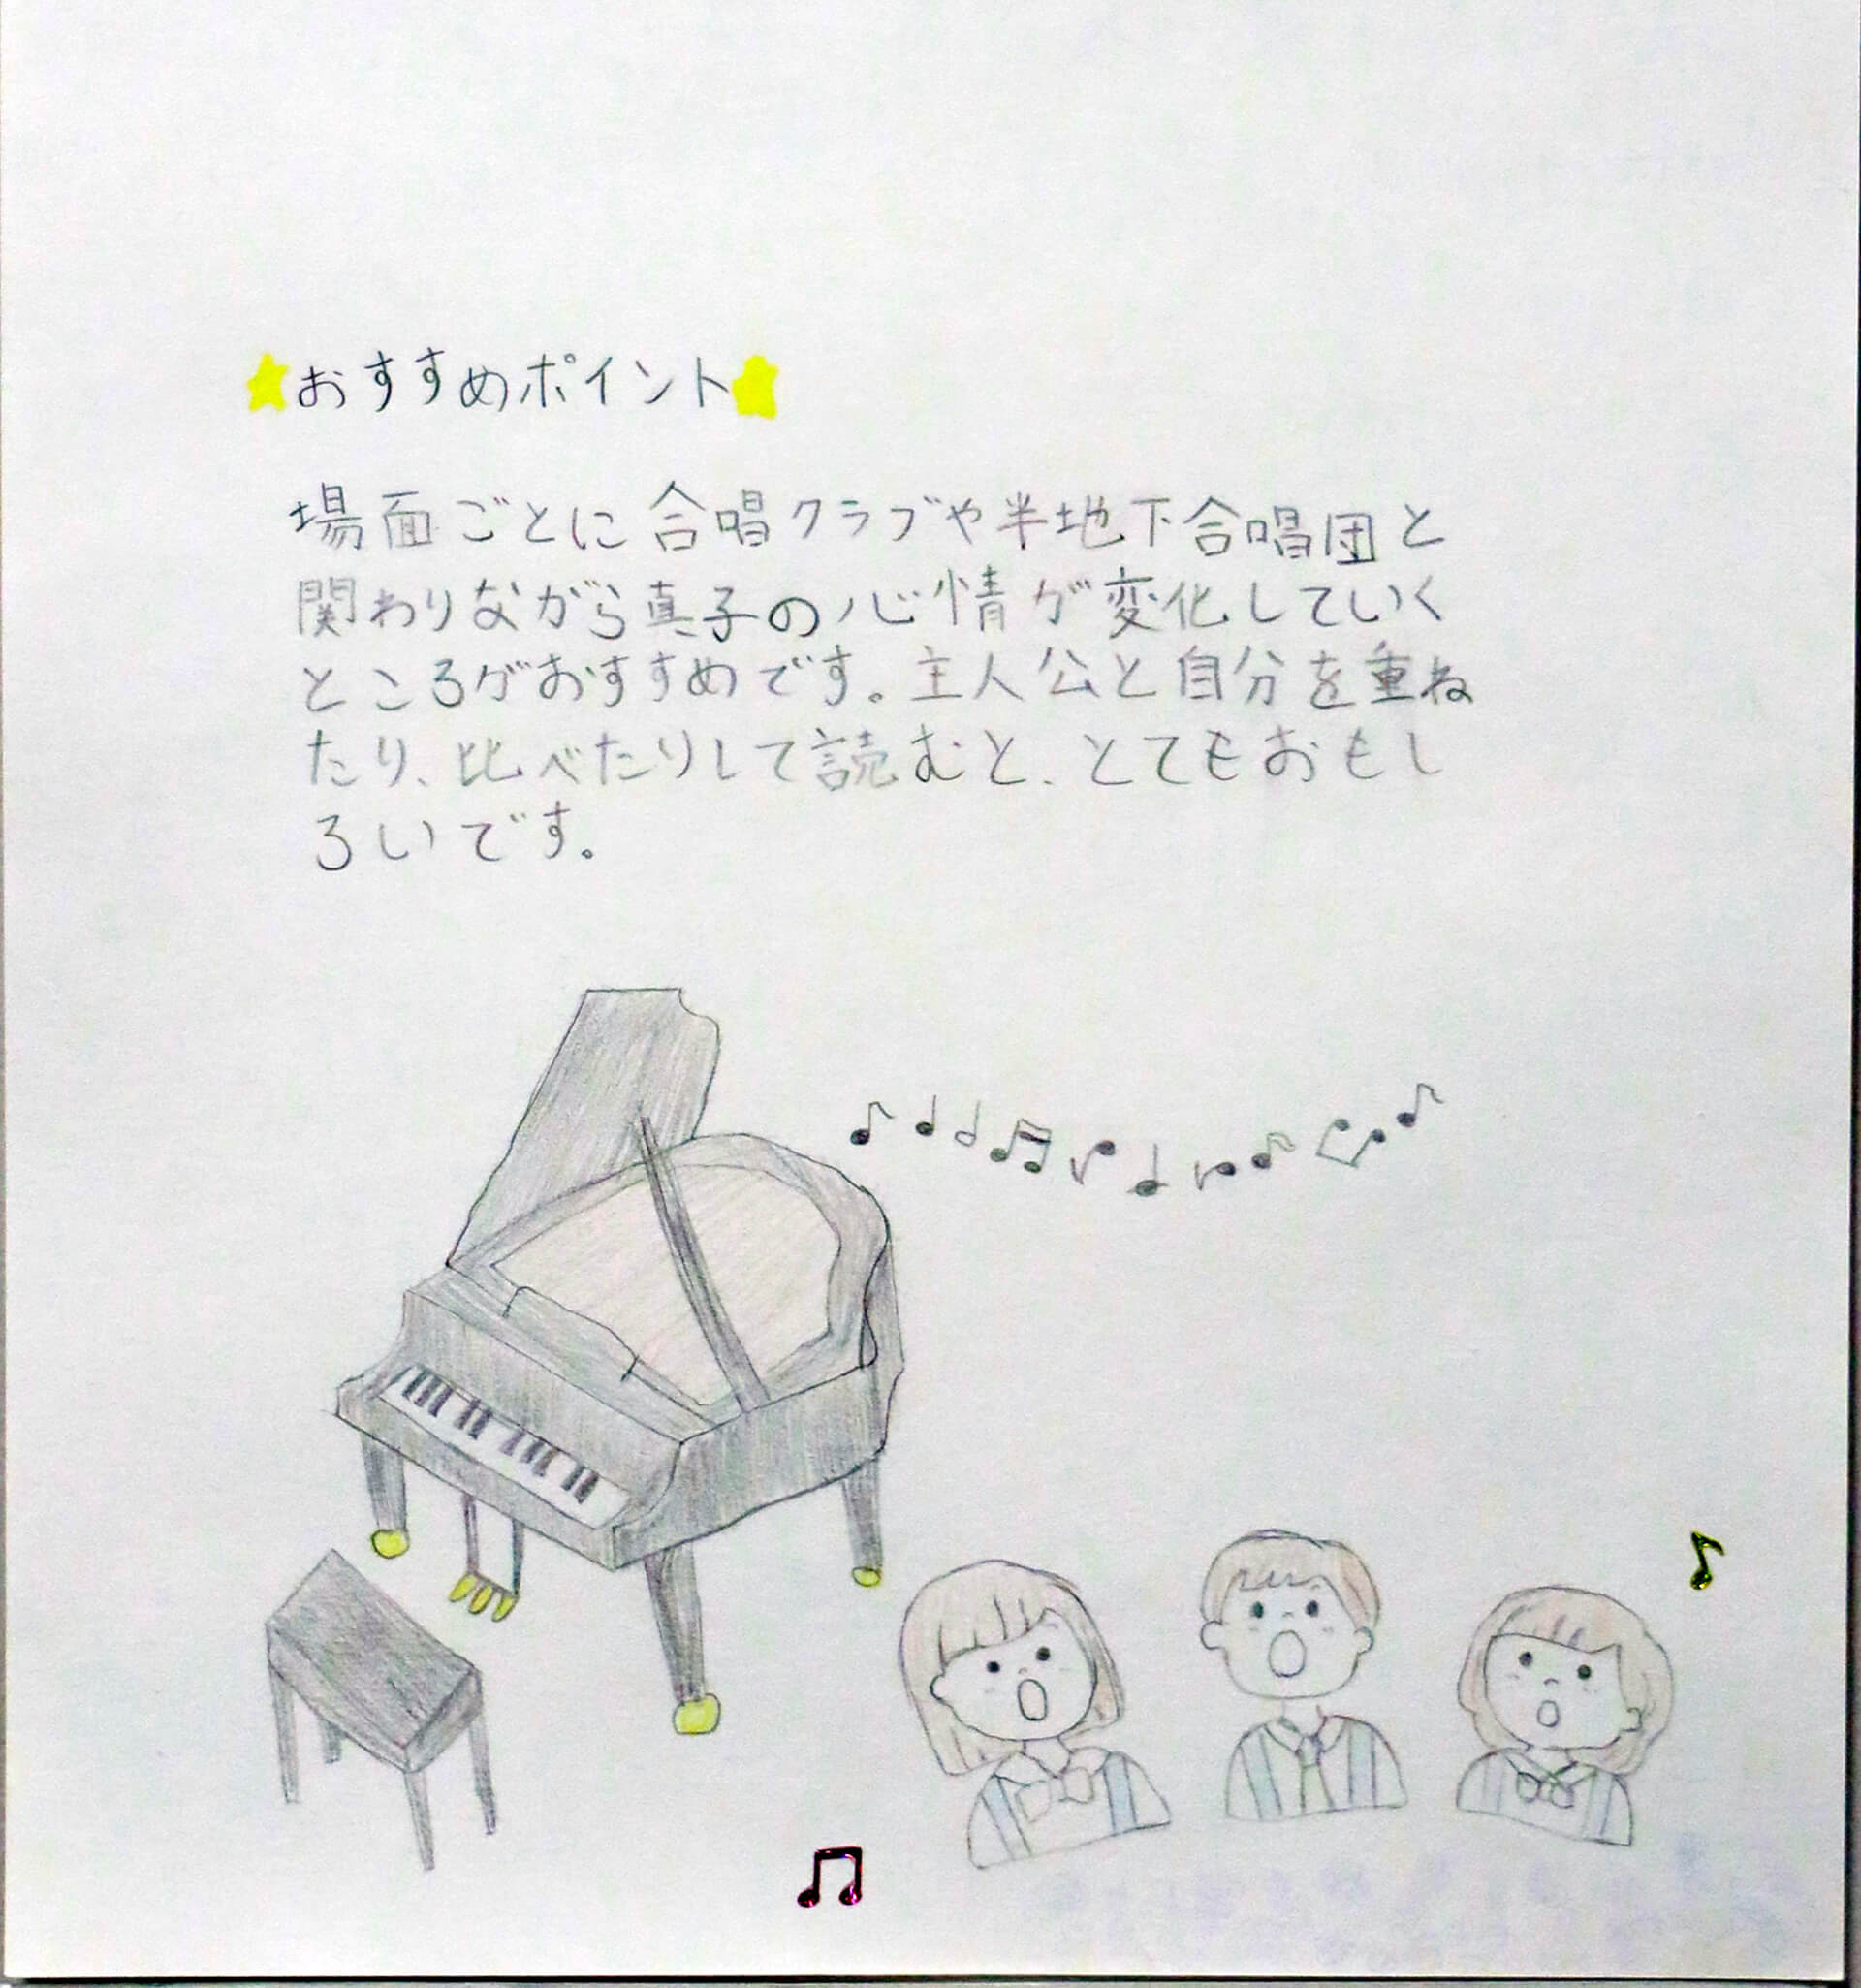 おすすめポイント
場面ごとに合唱クラブや半地下合唱団と
関わりながら真子の心情が変化していく
ところがおすすめです。主人公と自分を重ね
たり、比べたりして読むと、とてもおもし
ろいです。